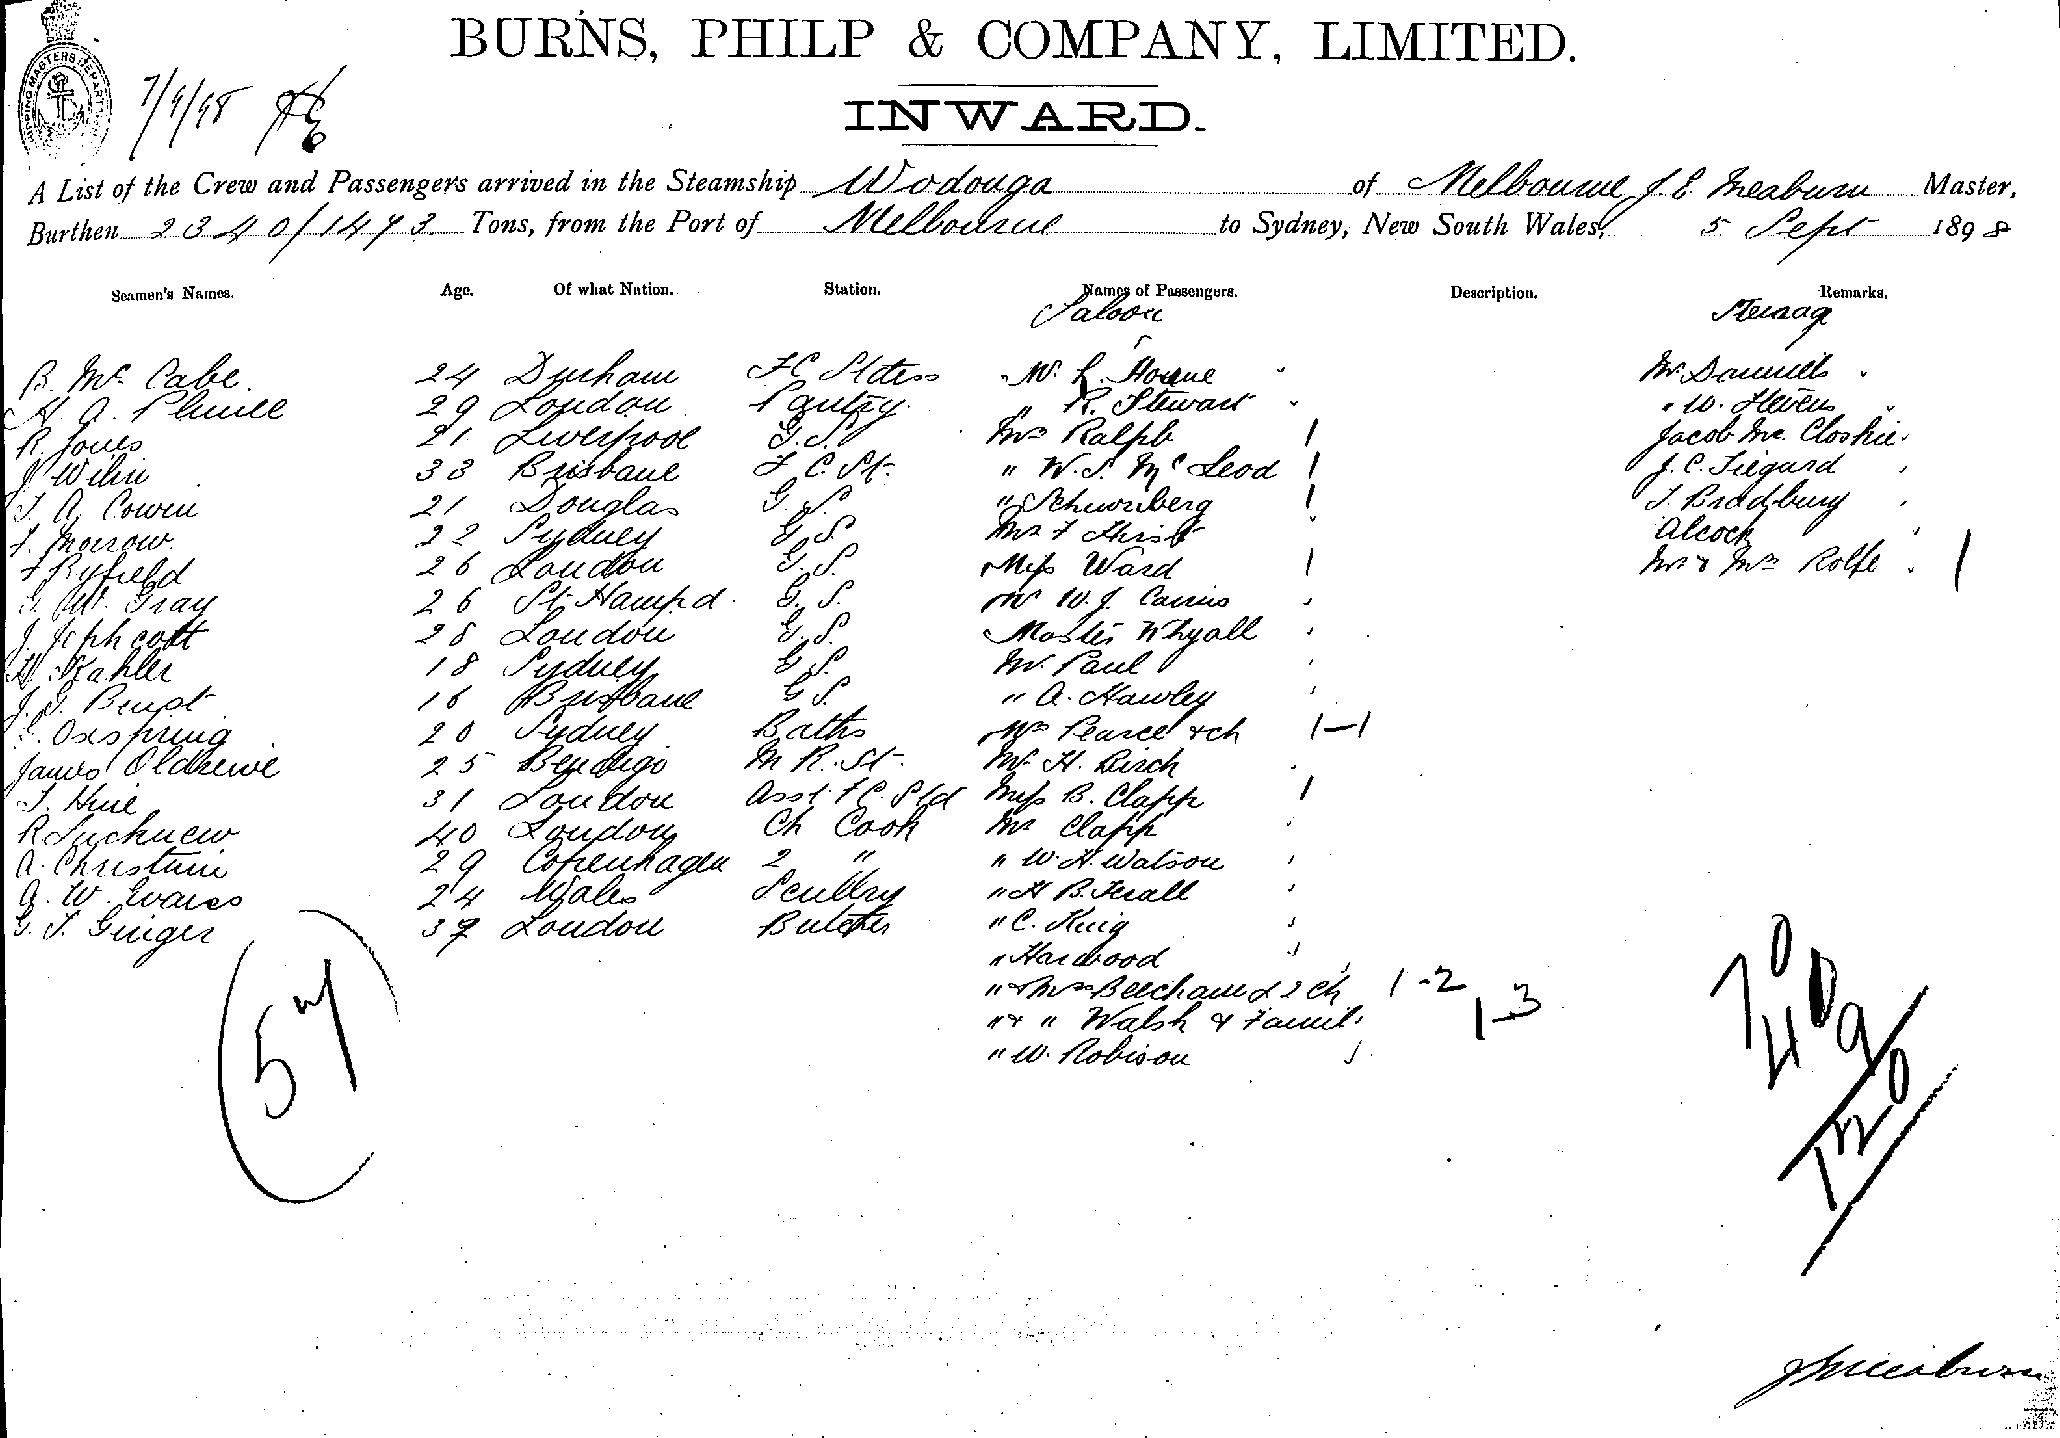 BURNS, PHILP & COMPANY, LIMITED.
7/9/98
INWARD.
A List of the Crew and Passengers arrived in the Steamship Wodonga of Melbourne J E Meaburn Master,
Burthen 2340/1473 Tons, from the Port of Melbourne to Sydney, New South Wales, 5 Sept 1898
Seamen's Names. Age. Of what Nation. Station. Names of Passengers. Description. Remarks.
Saloon Steerage
B. Mc Cabe. 24 Durham Mr. L. Horne Mr Daniells
H. A. 29 London Pantry. " R. Stewart " W. Stevens
R. Jones 21 Liverpool G.S. Mrs Ralph 1 Jacob Mc. Closkie
J 33 Brisbane F C. St. " W. S. Mc Leod 1 J. C.
T. A. Cowen 21 Douglas G.S. " 1 T. Bradbury
F. Morrow. 22 Sydney G.S. Mr F Alcock
26 London G.S. Miss Ward 1 Mr & Mrs Rolfe 1
G. W. Gray 26 St Hampd. G.S. Mr W. J.
J. Jephcott 28 London G.S. Master Whyall
H. Kahler 18 Sydney G.S. Mr. Paul
J. G. 16 Brisbane G.S. " A. Hawley
Oxspring 20 Sydney Baths Mrs Pearce & ch 1-1
James 25 Bendigo M R. St. Mr. H. Birch
T. Hine 31 London Asst. F C. Std Miss B. Clapp 1
R 40 London Ch Cook Mr Clapp
A. 29 Copenhagen 2 " " W. H. Watson
A. W. Evans 24 Wales Scullry " H B.
G. T. Ginger London Butcher " C. King
" Harwood
" & Mrs Beecham & 2 ch 1-2
" & " Walsh & Famil 1-3
" W. Robison